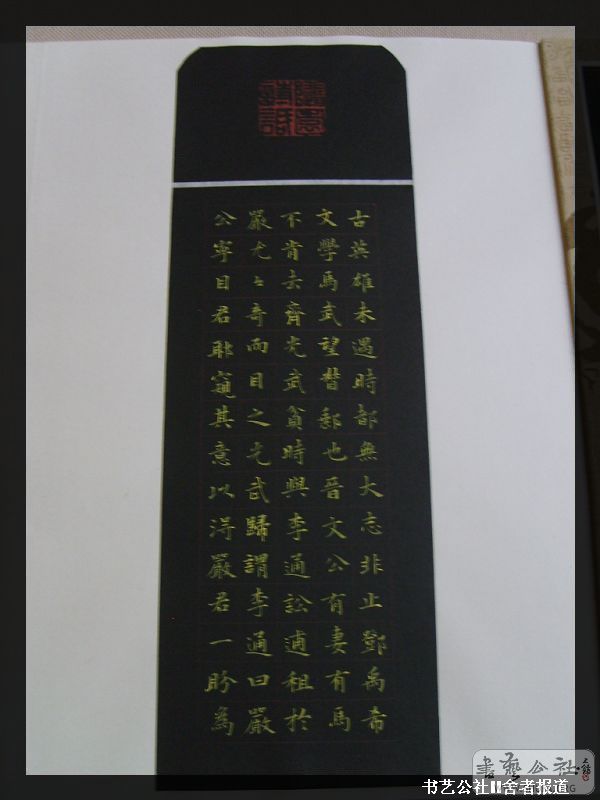 古英雄未遇時都無大志非止鄧禹希
文學馬武望督郵也晉文公有妻有馬
不肯去齊光武貧時與李通訟逋租於
嚴尤〻奇而目之光武歸謂李通曰嚴
公寧目君耶窺其意以得嚴君一盼為
書藝公社
书艺公社II舍者报道